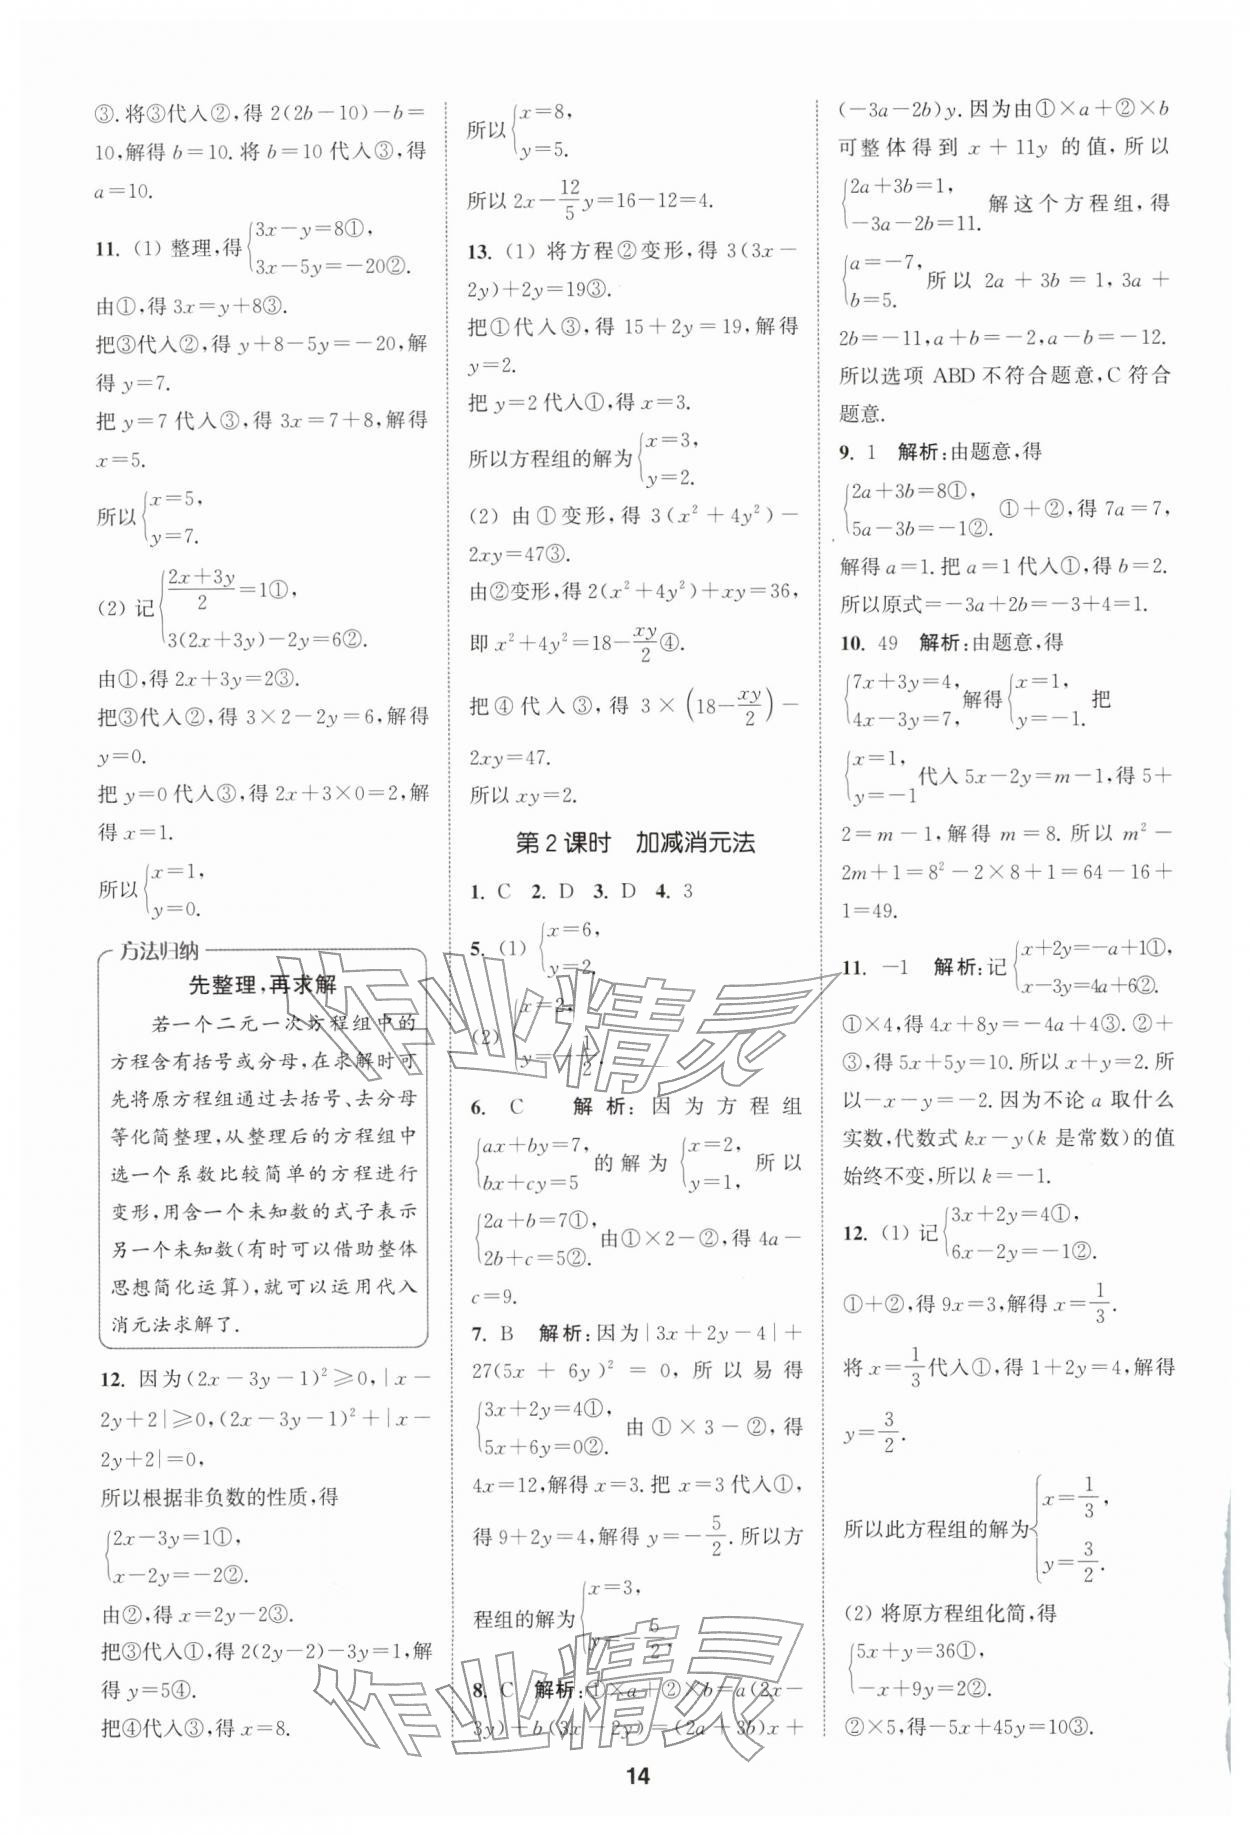 ③.将③代入②,得 2(2b-10)-b=
10,解得 b=10. 将 b=10 代入③,得
a=10.
11. (1) 整理,得{3x-y=8①, 3x-5y=-20②.
由①,得 3x=y+8③.
把③代入②,得 y+8-5y=-20,解
得 y=7.
把 y=7 代入③,得 3x=7+8,解得
x=5.
所以{x=5, y=7.
(2) 记{(2x+3y)/2=1①, 3(2x+3y)-2y=6②.
由①,得 2x+3y=2③.
把③代入②,得 3×2-2y=6,解得
y=0.
把 y=0 代入③,得 2x+3×0=2,解
得 x=1.
所以{x=1, y=0.
方法归纳
先整理,再求解
若一个二元一次方程组中的
方程含有括号或分母,在求解时可
先将原方程组通过去括号、去分母
等化简整理,从整理后的方程组中
选一个系数比较简单的方程进行
变形,用含一个未知数的式子表示
另一个未知数(有时可以借助整体
思想简化运算),就可以运用代入
消元法求解了.
12. 因为(2x-3y-1)²≥0,|x-
2y+2|≥0,(2x-3y-1)²+|x-
2y+2|=0,
所以根据非负数的性质,得
{2x-3y=1①, x-2y=-2②.
由②,得 x=2y-2③.
把③代入①,得 2(2y-2)-3y=1,解
得 y=5④.
把④代入③,得 x=8.
所以{x=8, y=5.
所以 2x-12/5y=16-12=4.
13. (1) 将方程②变形,得 3(3x-
2y)+2y=19③.
把①代入③,得 15+2y=19,解得
y=2.
把 y=2 代入①,得 x=3.
所以方程组的解为{x=3, y=2.
(2) 由①变形,得 3(x²+4y²)-
2xy=47③.
由②变形,得 2(x²+4y²)+xy=36,
即 x²+4y²=18-xy/2④.
把④代入③,得 3×(18-xy/2)-
2xy=47.
所以 xy=2.
第 2 课时 加减消元法
1. C 2. D 3. D 4. 3
5. (1) {x=6, y=2.
(2) {x=2, y=-1/2.
6. C 解析:因为方程组
{ax+by=7, bx+cy=5 的解为 {x=2, y=1, 所以
{2a+b=7①, 2b+c=5②. 由①×2-②,得 4a-
c=9.
7. B 解析:因为|3x+2y-4|+
27(5x+6y)²=0,所以易得
{3x+2y=4①, 5x+6y=0②. 由①×3-②,得
4x=12,解得 x=3. 把 x=3 代入①,
得 9+2y=4,解得 y=-5/2. 所以方
程组的解为{x=3, y=-5/2.
8. C 解析:①×a+②×b=a(2x-
3y)+b(3x-2y)=(2a+3b)x+
(-3a-2b)y. 因为由①×a+②×b
可整体得到 x+11y 的值,所以
{2a+3b=1, -3a-2b=11. 解这个方程组,得
{a=-7, b=5. 所以 2a+3b=1,3a+
2b=-11,a+b=-2,a-b=-12.
所以选项 ABD 不符合题意,C 符合
题意.
9. 1 解析:由题意,得
{2a+3b=8①, 5a-3b=-1②. ①+②,得 7a=7,
解得 a=1. 把 a=1 代入①,得 b=2.
所以原式=-3a+2b=-3+4=1.
10. 49 解析:由题意,得
{7x+3y=4, 4x-3y=7, 解得{x=1, y=-1. 把
{x=1, y=-1 代入 5x-2y=m-1,得 5+
2=m-1,解得 m=8. 所以 m²-
2m+1=8²-2×8+1=64-16+
1=49.
11. -1 解析:记{x+2y=-a+1①, x-3y=4a+6②.
①×4,得 4x+8y=-4a+4③. ②+
③,得 5x+5y=10. 所以 x+y=2. 所
以-x-y=-2. 因为不论 a 取什么
实数,代数式 kx-y(k 是常数)的值
始终不变,所以 k=-1.
12. (1) 记{3x+2y=4①, 6x-2y=-1②.
①+②,得 9x=3,解得 x=1/3.
将 x=1/3代入①,得 1+2y=4,解得
y=3/2.
所以此方程组的解为{x=1/3, y=3/2.
(2) 将原方程组化简,得
{5x+y=36①, -x+9y=2②.
②×5,得-5x+45y=10③.
14
作业精灵
作业精灵